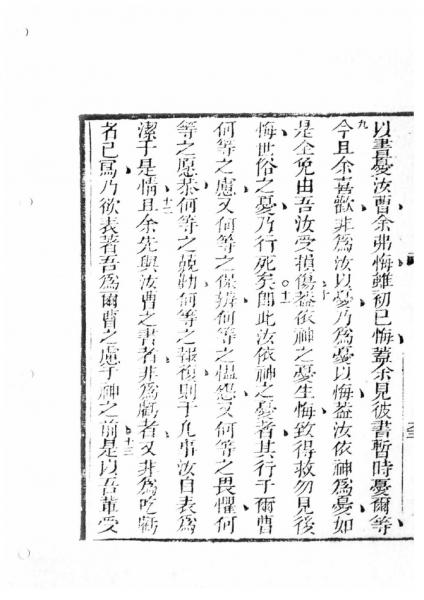 以書憂汝曹余弗悔雖初已悔蓋余見彼書暫時憂爾等
九今且余喜歡非爲汝以憂乃爲憂以悔蓋汝依神爲憂如
是全免由吾汝受損傷十蓋依神之憂生悔致得救勿見後
悔世俗之憂乃行死矣十一卽此汝依神之憂者其行于爾曹
何等之慮又何等之保辨何等之慍怨又何等之畏懼何
等之愿恭何等之勅何等之報復則于凡事汝自表爲
潔于是情十二且余先與汝曹之書者非爲虧者又非爲吃虧
者已爲乃欲表著吾爲爾曹之慮于神之前十三是以吾輩受